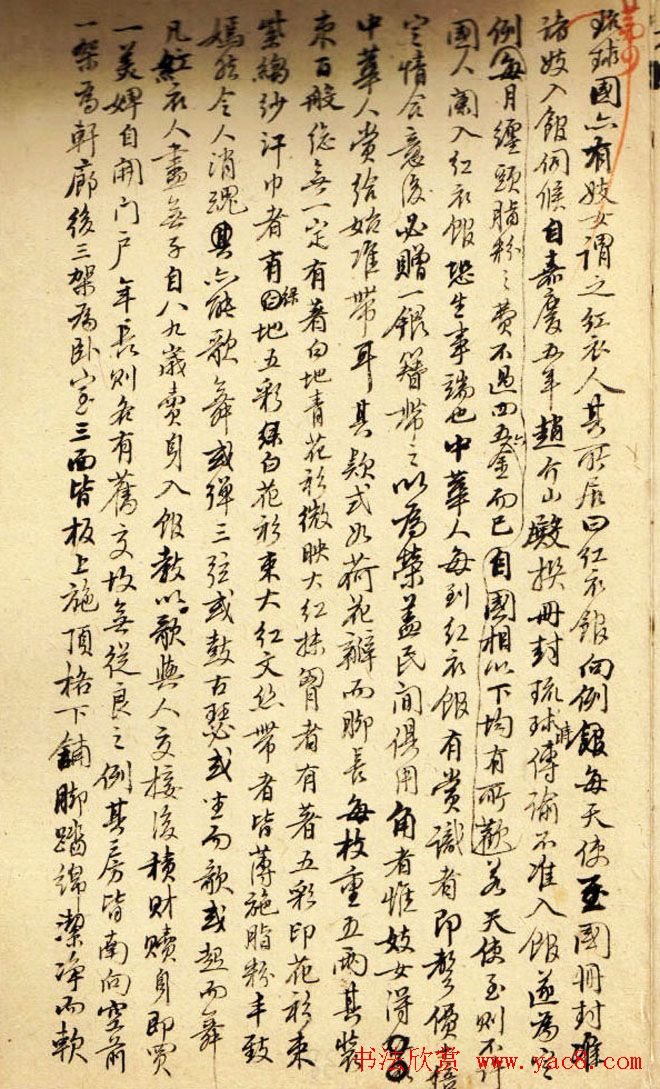 琉球國亦有妓女謂之紅衣人其所居曰紅衣館向例每天使至國冊封
諸妓入館伺候自嘉慶五年趙介山殿撰冊封琉球時傳諭不准入館遂為定
例每月纏頭脂粉之費不過四五金而已自國相以下均有所歡若天使至則不
國人闌入紅衣館恐生事端也中華人每到紅衣館有賞識者即聲價
定情合意後必贈一銀簪帶之以為榮蓋民間俱用角者惟妓女得
中華人賞給始准帶耳其款式如荷花瓣而腳長每枝重五兩其裝
束百般總無一定有著白地青花衫微映大紅抹胸者有著五彩印花衫束
紫縐紗汗巾者有綠地五彩白花衫束大紅文絲帶者皆薄施脂粉丰致
嫣然令人消魂其亦能歌舞或彈三弦或鼓古瑟或坐而歌或起而舞
凡紅衣人盡無子自八九歲賣身入館教以歌與人交接後積財贖身即買
一美婢自開門戶年長則各有舊交故無從良之例其房皆南向空前
一架為軒廊後三架為臥室三面皆板上施頂格下鋪腳踏綿潔淨而軟
书法欣赏 www.yac8.com